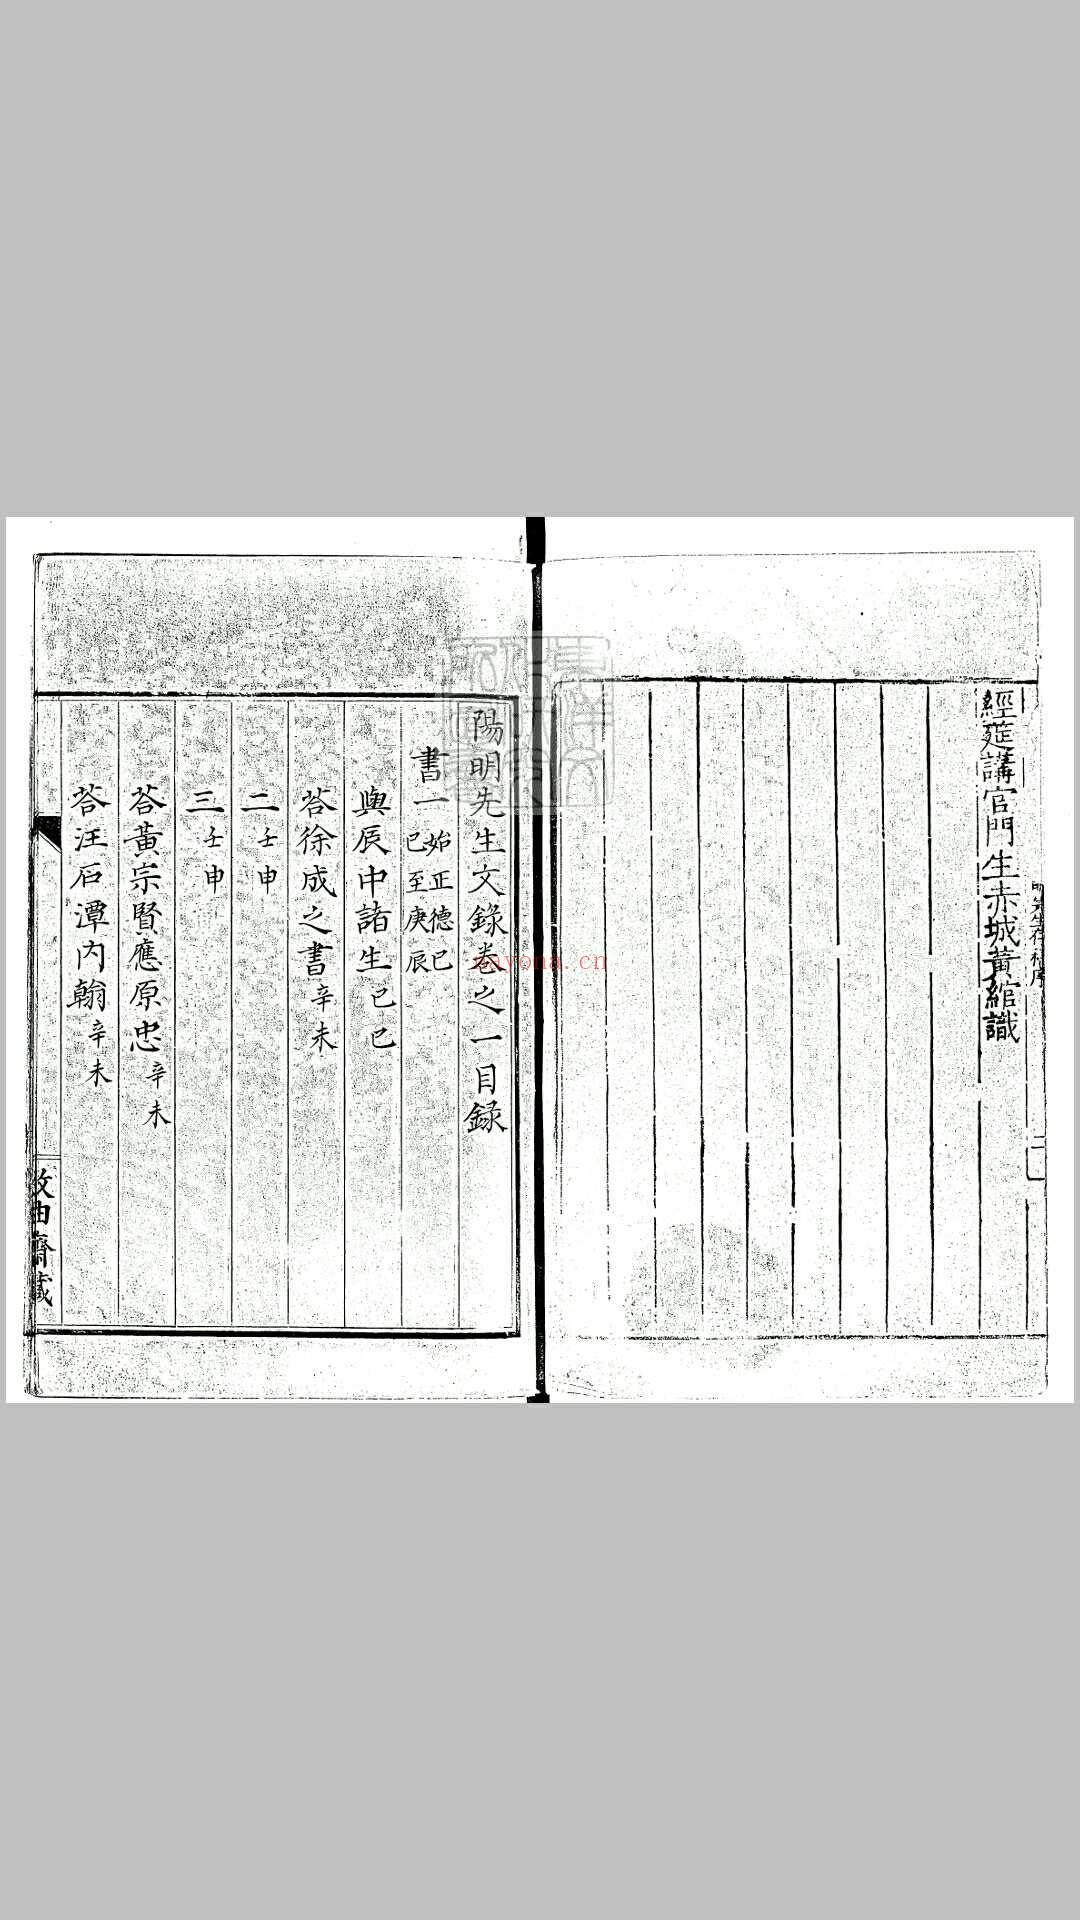 經筵講官門生赤城黃綰識
陽明先生文錄卷之一目錄
書一始正德己巳至庚辰
與辰中諸生己巳
荅徐成之書辛未
二壬申
三壬申
荅黃宗賢應原忠辛未
荅汪石潭內翰辛未
nayona.cn